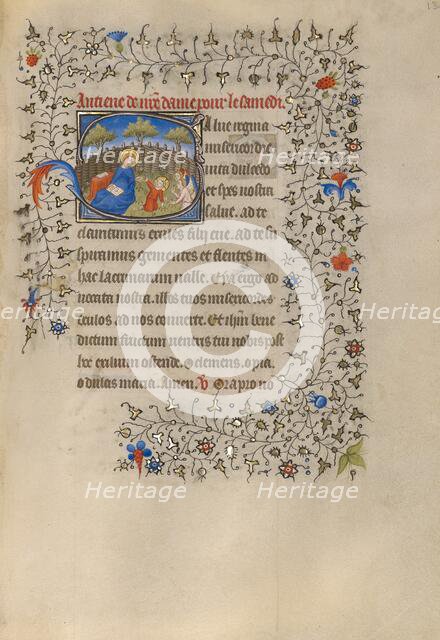 Antiene de nr̄e dame pour le samedi.
Salue regina
misericordie
uita dulcedo
et spes nostra
salue. ad te
clamamus exules filij eue. ad te su
spiramus gementes et flentes in
hac lacrimarum ualle. Eya ergo ad
uocata nostra. illos tuos misericordes
oculos ad nos conuerte. Et ihm bene
dictum fructum uentris tui nobis post
hoc exilium ostende. O clemens. o pia.
o dulcis maria. Amen. V Ora pro no
Heritage
Heritage
Heritage
Heritage
Heritage
Heritage
Heritage
Heritage
C